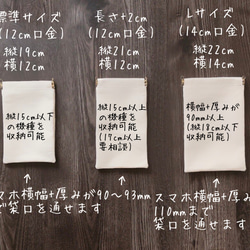 標準サイズ
(12cm口金)
縦19cm
横12cm
縦15cm以下
の機種を
収納可能
マホ横幅+厚みが90〜93mm
で袋口を通せます
長さ+2cm
(12cm口金)
縦21cm
横12cm
縦15cm以上
の機種を
収納可能
(17cm以上
要相談)
Lサイズ
(14cm口金)
縦22cm
横14cm
横幅+厚みが
90mm以上
(縦18cm以下
収納可能)
スマホ横幅+厚みが
110mmまで
袋口を通せます